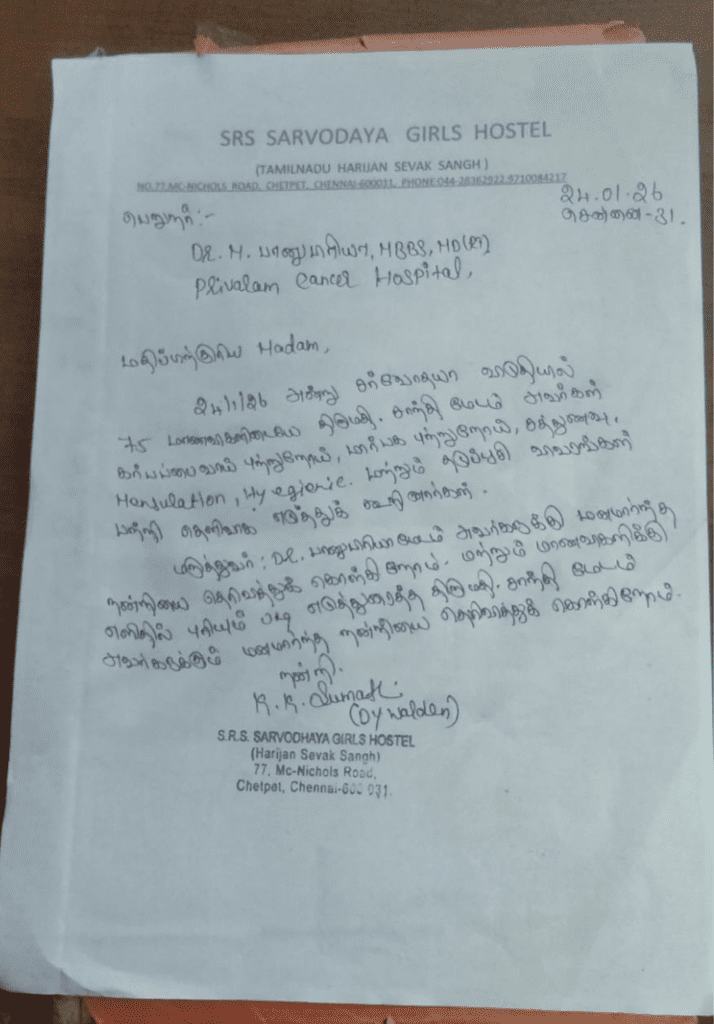 SRS SARVODAYA GIRLS HOSTEL
(TAMILNADU HARIJAN SEVAK SANGH)
NO.77,MC-NICHOLS ROAD, CHETPET, CHENNAI-600031, PHONE:044-28362922,9710084217
24.01.26
சென்னை-31.
பெறுநர்:-
Dr. M. பானுபிரியா, MBBS, MD(
Privalam Cancer Hospital,
மதிப்பிற்குரிய Madam,
24/1/26 அன்று சர்வோதயா விடுதியில்
75 மாணவிகளிடையே திருமதி. சாந்தி மேடம் அவர்கள்
கர்ப்பப்பைவாய் புற்றுநோய், மார்பக புற்றுநோய், சத்துணவு,
Mensulation, Hy egienic. மற்றும் தடுப்பூசி விவரங்கள்
பற்றி தெளிவாக எடுத்துக் கூறினார்கள்.
மருத்துவர் : Dr. பானுபிரியா மேடம் அவர்களுக்கு மனமார்ந்த
நன்றியை தெரிவித்துக் கொள்கிறோம். மற்றும் மாணவிகளுக்கு
எளிதில் புரியும் படி எடுத்துரைத்த திருமதி. சாந்தி மேடம்
அவர்களுக்கும் மனமார்ந்த நன்றியை தெரிவித்துக் கொள்கிறோம்.
நன்றி.
K. R. Sumathi
(Dy Warden)
S.R.S. SARVODHAYA GIRLS HOSTEL
(Harijan Sevak Sangh)
77, Mc-Nichols Road,
Chetpet, Chennai-600 031.